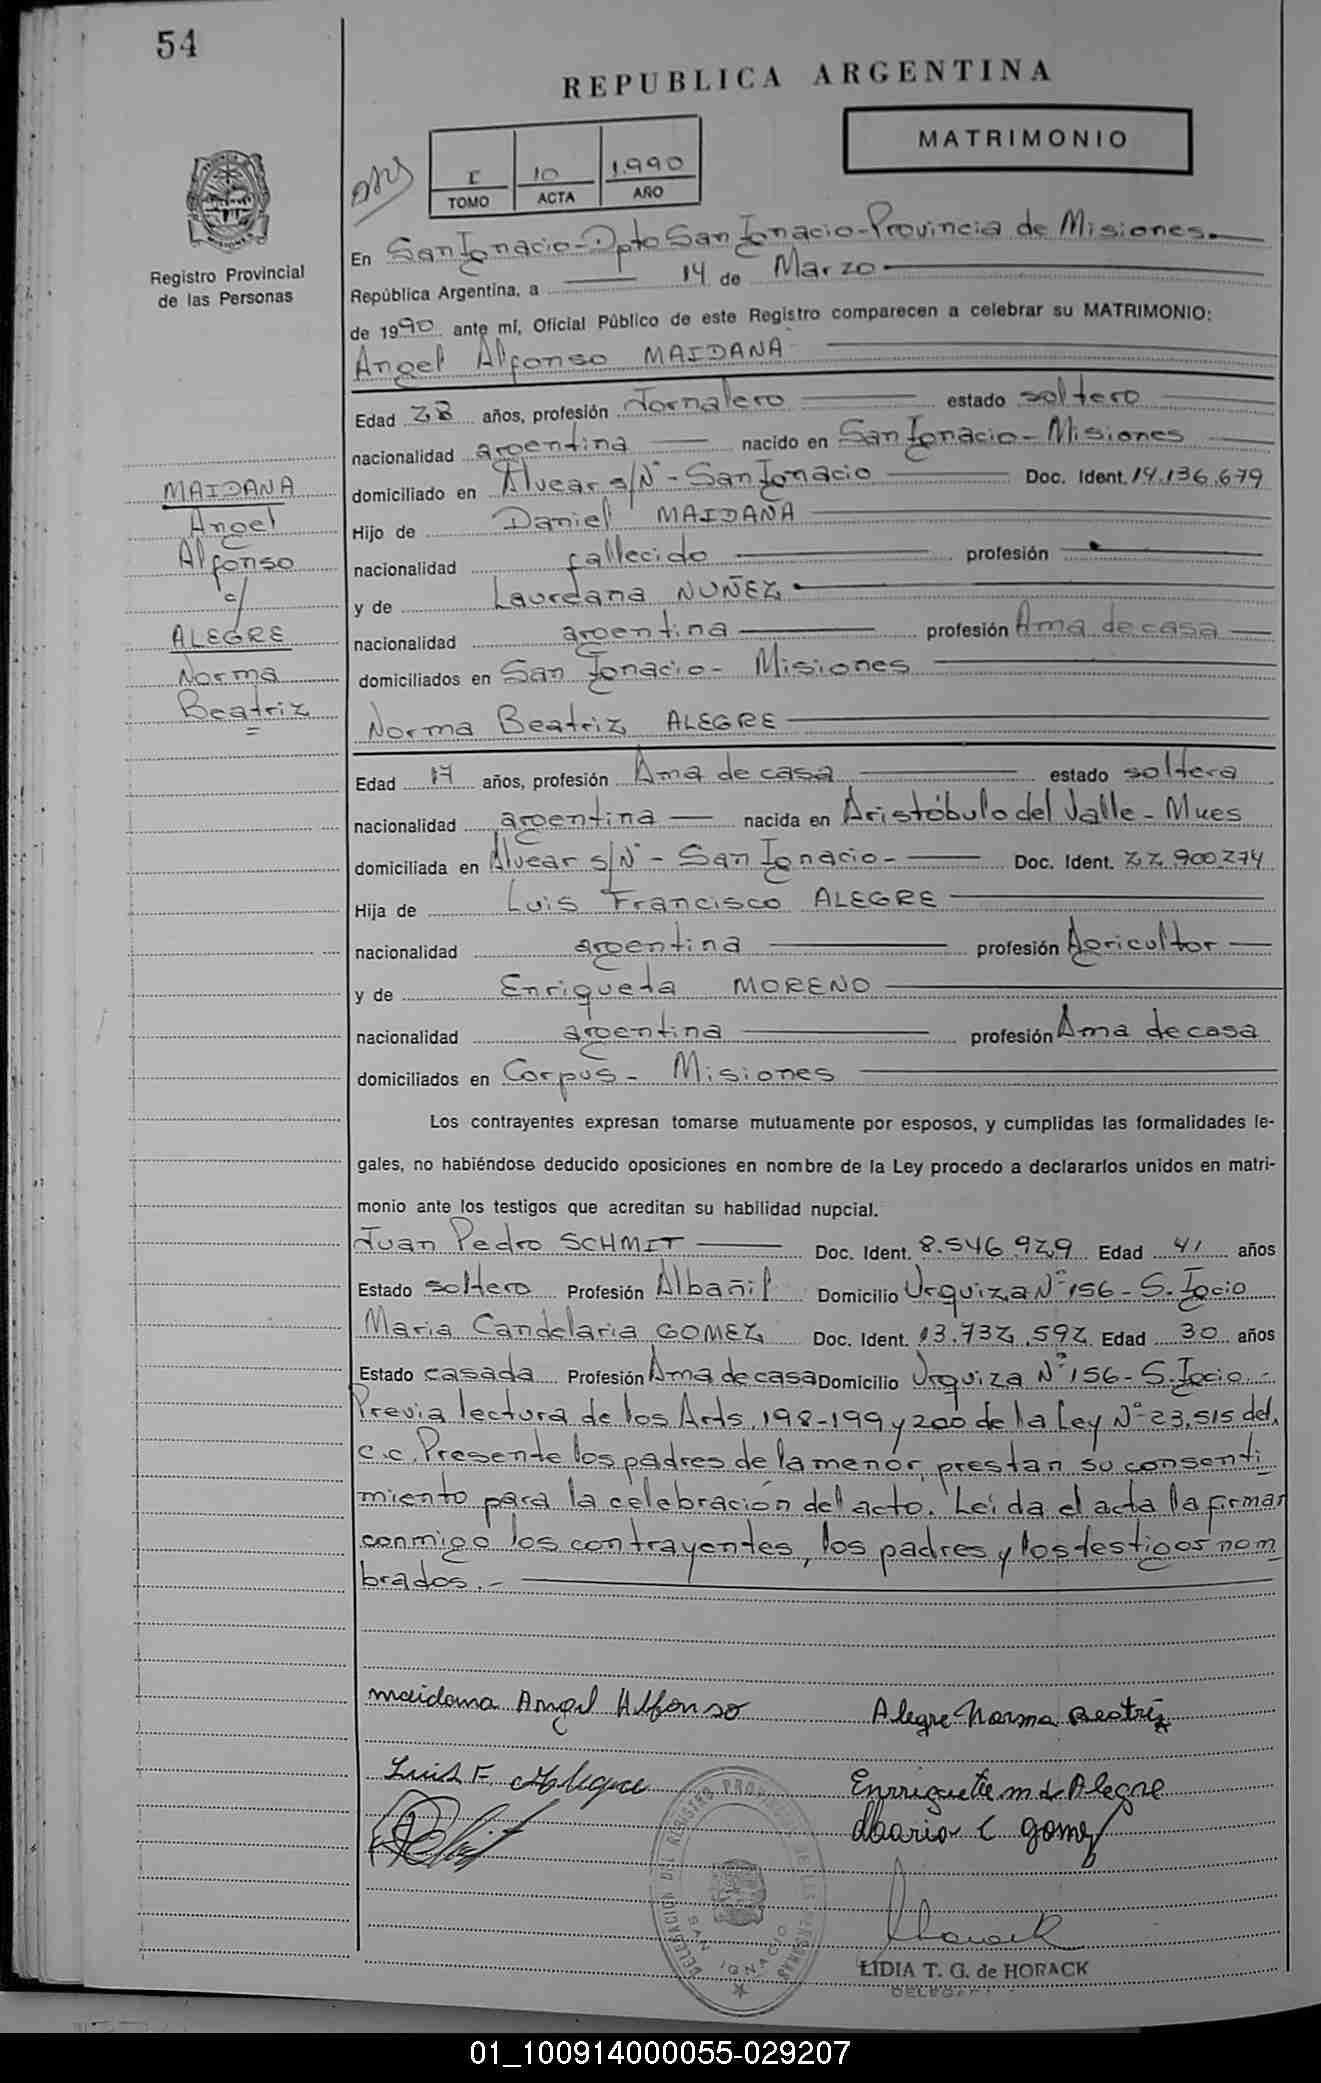 54
REPUBLICA ARGENTINA
MATRIMONIO
I 10 1.990
TOMO ACTA AÑO
Registro Provincial
de las Personas
En San Ignacio - Dpto San Ignacio - Provincia de Misiones.
República Argentina, a 14 de Marzo
de 1990 ante mí, Oficial Público de este Registro comparecen a celebrar su MATRIMONIO:
Angel Alfonso MAIDANA
Edad 28 años, profesión Jornalero estado soltero
nacionalidad argentina nacido en San Ignacio - Misiones
domiciliado en Alvear s/Nº - San Ignacio Doc. Ident. 14.136.679
Hijo de Daniel MAIDANA
nacionalidad fallecido profesión
y de Laureana NUÑEZ
nacionalidad argentina profesión Ama de casa
domiciliados en San Ignacio - Misiones
MAIDANA
Angel
Alfonso
c/
ALEGRE
Norma
Beatriz
Norma Beatriz ALEGRE
Edad 17 años, profesión Ama de casa estado soltera
nacionalidad argentina nacida en Aristóbulo del Valle - Mnes
domiciliada en Alvear s/Nº - San Ignacio - Doc. Ident. 22.900274
Hija de Luis Francisco ALEGRE
nacionalidad argentina profesión Agricultor
y de Enriqueta MORENO
nacionalidad argentina profesión Ama de casa
domiciliados en Corpus - Misiones
Los contrayentes expresan tomarse mutuamente por esposos, y cumplidas las formalidades le-
gales, no habiéndose deducido oposiciones en nombre de la Ley procedo a declararlos unidos en matri-
monio ante los testigos que acreditan su habilidad nupcial.
Juan Pedro SCHMIT Doc. Ident. 8.546.929 Edad 41 años
Estado soltero Profesión Albañil Domicilio Urquiza Nº 156 - S. Igcio
Maria Candelaria GOMEZ Doc. Ident. 13.732.592 Edad 30 años
Estado casada Profesión Ama de casa Domicilio Urquiza Nº 156 - S. Igcio.-
Previa lectura de los Arts. 198-199 y 200 de la Ley Nº 23.515 del.
c.c. Presente los padres de la menor, prestan su consenti
miento para la celebración del acto. Leída el acta la firman
conmigo los contrayentes, los padres y los testigos nom
brados.-
maidana Angel Alfonso Alegre Norma Beatriz
Luis F. Alegre Enrriqueta m de Alegre
Maria C gomez
DELEGACION DEL REGISTRO PROVINCIAL DE LAS PERSONAS
SAN IGNACIO
Horack
LIDIA T. G. de HORACK
01_100914000055-029207